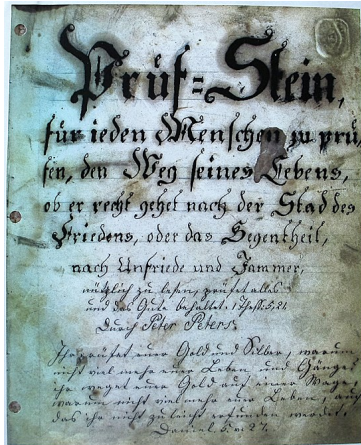 Prüf=Stein,
für ieden Menschen zu prü,
fen, den Weg seines Lebens,
ob er recht gehet nach der Stad des
Friedens, oder das Gegentheil,
nach Unfriede und Jammer,
nützlich zu lesen, prüfet alles
und das Gute behaltet. 1 Thess: 5, 21
Durch Peter Peters.
Ihr prüfet euer Gold und Silber, warum
nicht viel mehr euer Leben, und Gänge
ihr weget euer Geld auf einer Wage,
warum nicht viel mehr euer Leben, auf
das ihr nicht zu leicht erfunden werdet.
Daniel 5. v: 27.